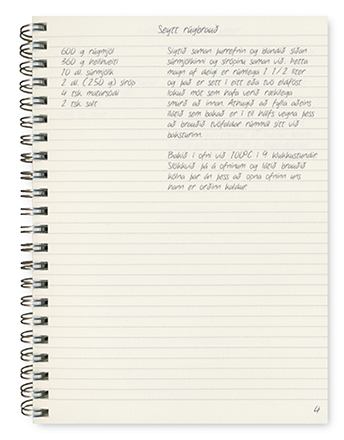 Seytt rúgbrauð
600 g rúgmjöl
360 g heilhveiti
10 dl. súrmjólk
2 dl. (250 g) síróp
4 tsk. matarsódi
2 tsk. salt
Sigtið saman þurrefnin og blandið síðan
súrmjólkinni og sírópinu saman við. Þetta
magn af deigi er rúmlega 2 1/2 líter
og það er sett í eitt eða tvö eldföst
lokuð mót sem hafa verið rækilega
smurð að innan. Athugið að fylla aðeins
ílátið sem bakað er í til hálfs vegna þess
að brauðið tvöfaldar rúmmál sitt við
baksturinn.
Bakið í ofni við 100°C í 9 klukkustundir.
Slökkvið þá á ofninum og látið brauðið
kólna þar án þess að opna ofninn uns
hann er orðinn kaldur.
4